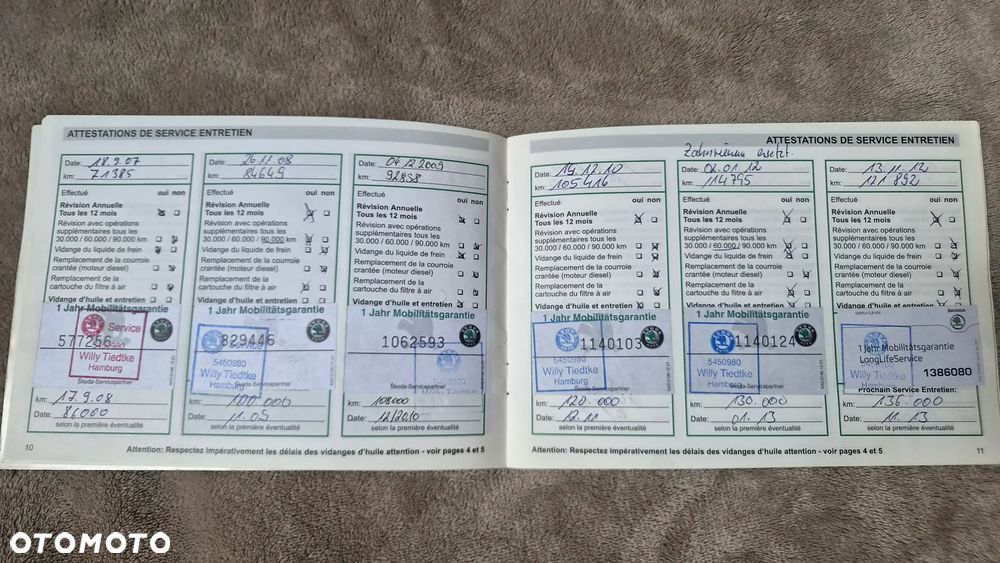 ATTESTATIONS DE SERVICE ENTRETIEN
Date: 18.9.07
km: 71385
Effectué oui non
Révision Annuelle
Tous les 12 mois
Révision avec opérations
supplémentaires tous les
30.000 / 60.000 / 90.000 km
Vidange du liquide de frein
Remplacement de la courroie
crantée (moteur diesel)
Remplacement de la
cartouche du filtre à air
Vidange d'huile et entretien
1 Jahr Mobilitätsgarantie
577256
Service
Willy Tiedtke
Hamburg
Škoda-Servicepartner
km: 17.9.08
Date: 86000
selon la première éventualité
Date: 26.11.08
km: 84649
Effectué oui non
Révision Annuelle
Tous les 12 mois
Révision avec opérations
supplémentaires tous les
30.000 / 60.000 / 90.000 km
Vidange du liquide de frein
Remplacement de la courroie
crantée (moteur diesel)
Remplacement de la
cartouche du filtre à air
Vidange d'huile et entretien
1 Jahr Mobilitätsgarantie
829446
5450980
Willy Tiedtke
Hamburg
Škoda-Servicepartner
km: 100.000
Date: 11.09
selon la première éventualité
Date: 04.12.2009
km: 92838
Effectué oui non
Révision Annuelle
Tous les 12 mois
Révision avec opérations
supplémentaires tous les
30.000 / 60.000 / 90.000 km
Vidange du liquide de frein
Remplacement de la courroie
crantée (moteur diesel)
Remplacement de la
cartouche du filtre à air
Vidange d'huile et entretien
1 Jahr Mobilitätsgarantie
1062593
Willy Tiedtke
Škoda-Servicepartner
km: 108000
Date: 12/2010
selon la première éventualité
10
Attention: Respectez impérativement les délais des vidanges d'huile attention - voir pages 4 et 5
ATTESTATIONS DE SERVICE ENTRETIEN
Zahnriemen ersetzt.
Date: 14.12.10
km: 105416
Effectué oui non
Révision Annuelle
Tous les 12 mois
Révision avec opérations
supplémentaires tous les
30.000 / 60.000 / 90.000 km
Vidange du liquide de frein
Remplacement de la courroie
crantée (moteur diesel)
Remplacement de la
cartouche du filtre à air
Vidange d'huile et entretien
1 Jahr Mobilitätsgarantie
1140103
5450980
Willy Tiedtke
Hamburg
Škoda-Servicepartner
km: 120.000
Date: 12.11
selon la première éventualité
Date: 02.01.12
km: 114795
Effectué oui non
Révision Annuelle
Tous les 12 mois
Révision avec opérations
supplémentaires tous les
30.000 / 60.000 / 90.000 km
Vidange du liquide de frein
Remplacement de la courroie
crantée (moteur diesel)
Remplacement de la
cartouche du filtre à air
Vidange d'huile et entretien
1 Jahr Mobilitätsgarantie
1140124
5450980
Willy Tiedtke
Hamburg
Škoda-Servicepartner
km: 130.000
Date: 01.13
selon la première éventualité
Date: 13.11.12
km: 121892
Effectué oui non
Révision Annuelle
Tous les 12 mois
Révision avec opérations
supplémentaires tous les
30.000 / 60.000 / 90.000 km
Vidange du liquide de frein
Remplacement de la courroie
crantée (moteur diesel)
Remplacement de la
cartouche du filtre à air
Vidange d'huile et entretien
SIMPLY CLEVER
ŠKODA
1 Jahr Mobilitätsgarantie
LongLifeService
1386080
Prochain Service Entretien:
km: 136.000
Date: 11.13
selon la première éventualité
Attention: Respectez impérativement les délais des vidanges d'huile attention - voir pages 4 et 5
11
OTOMOTO